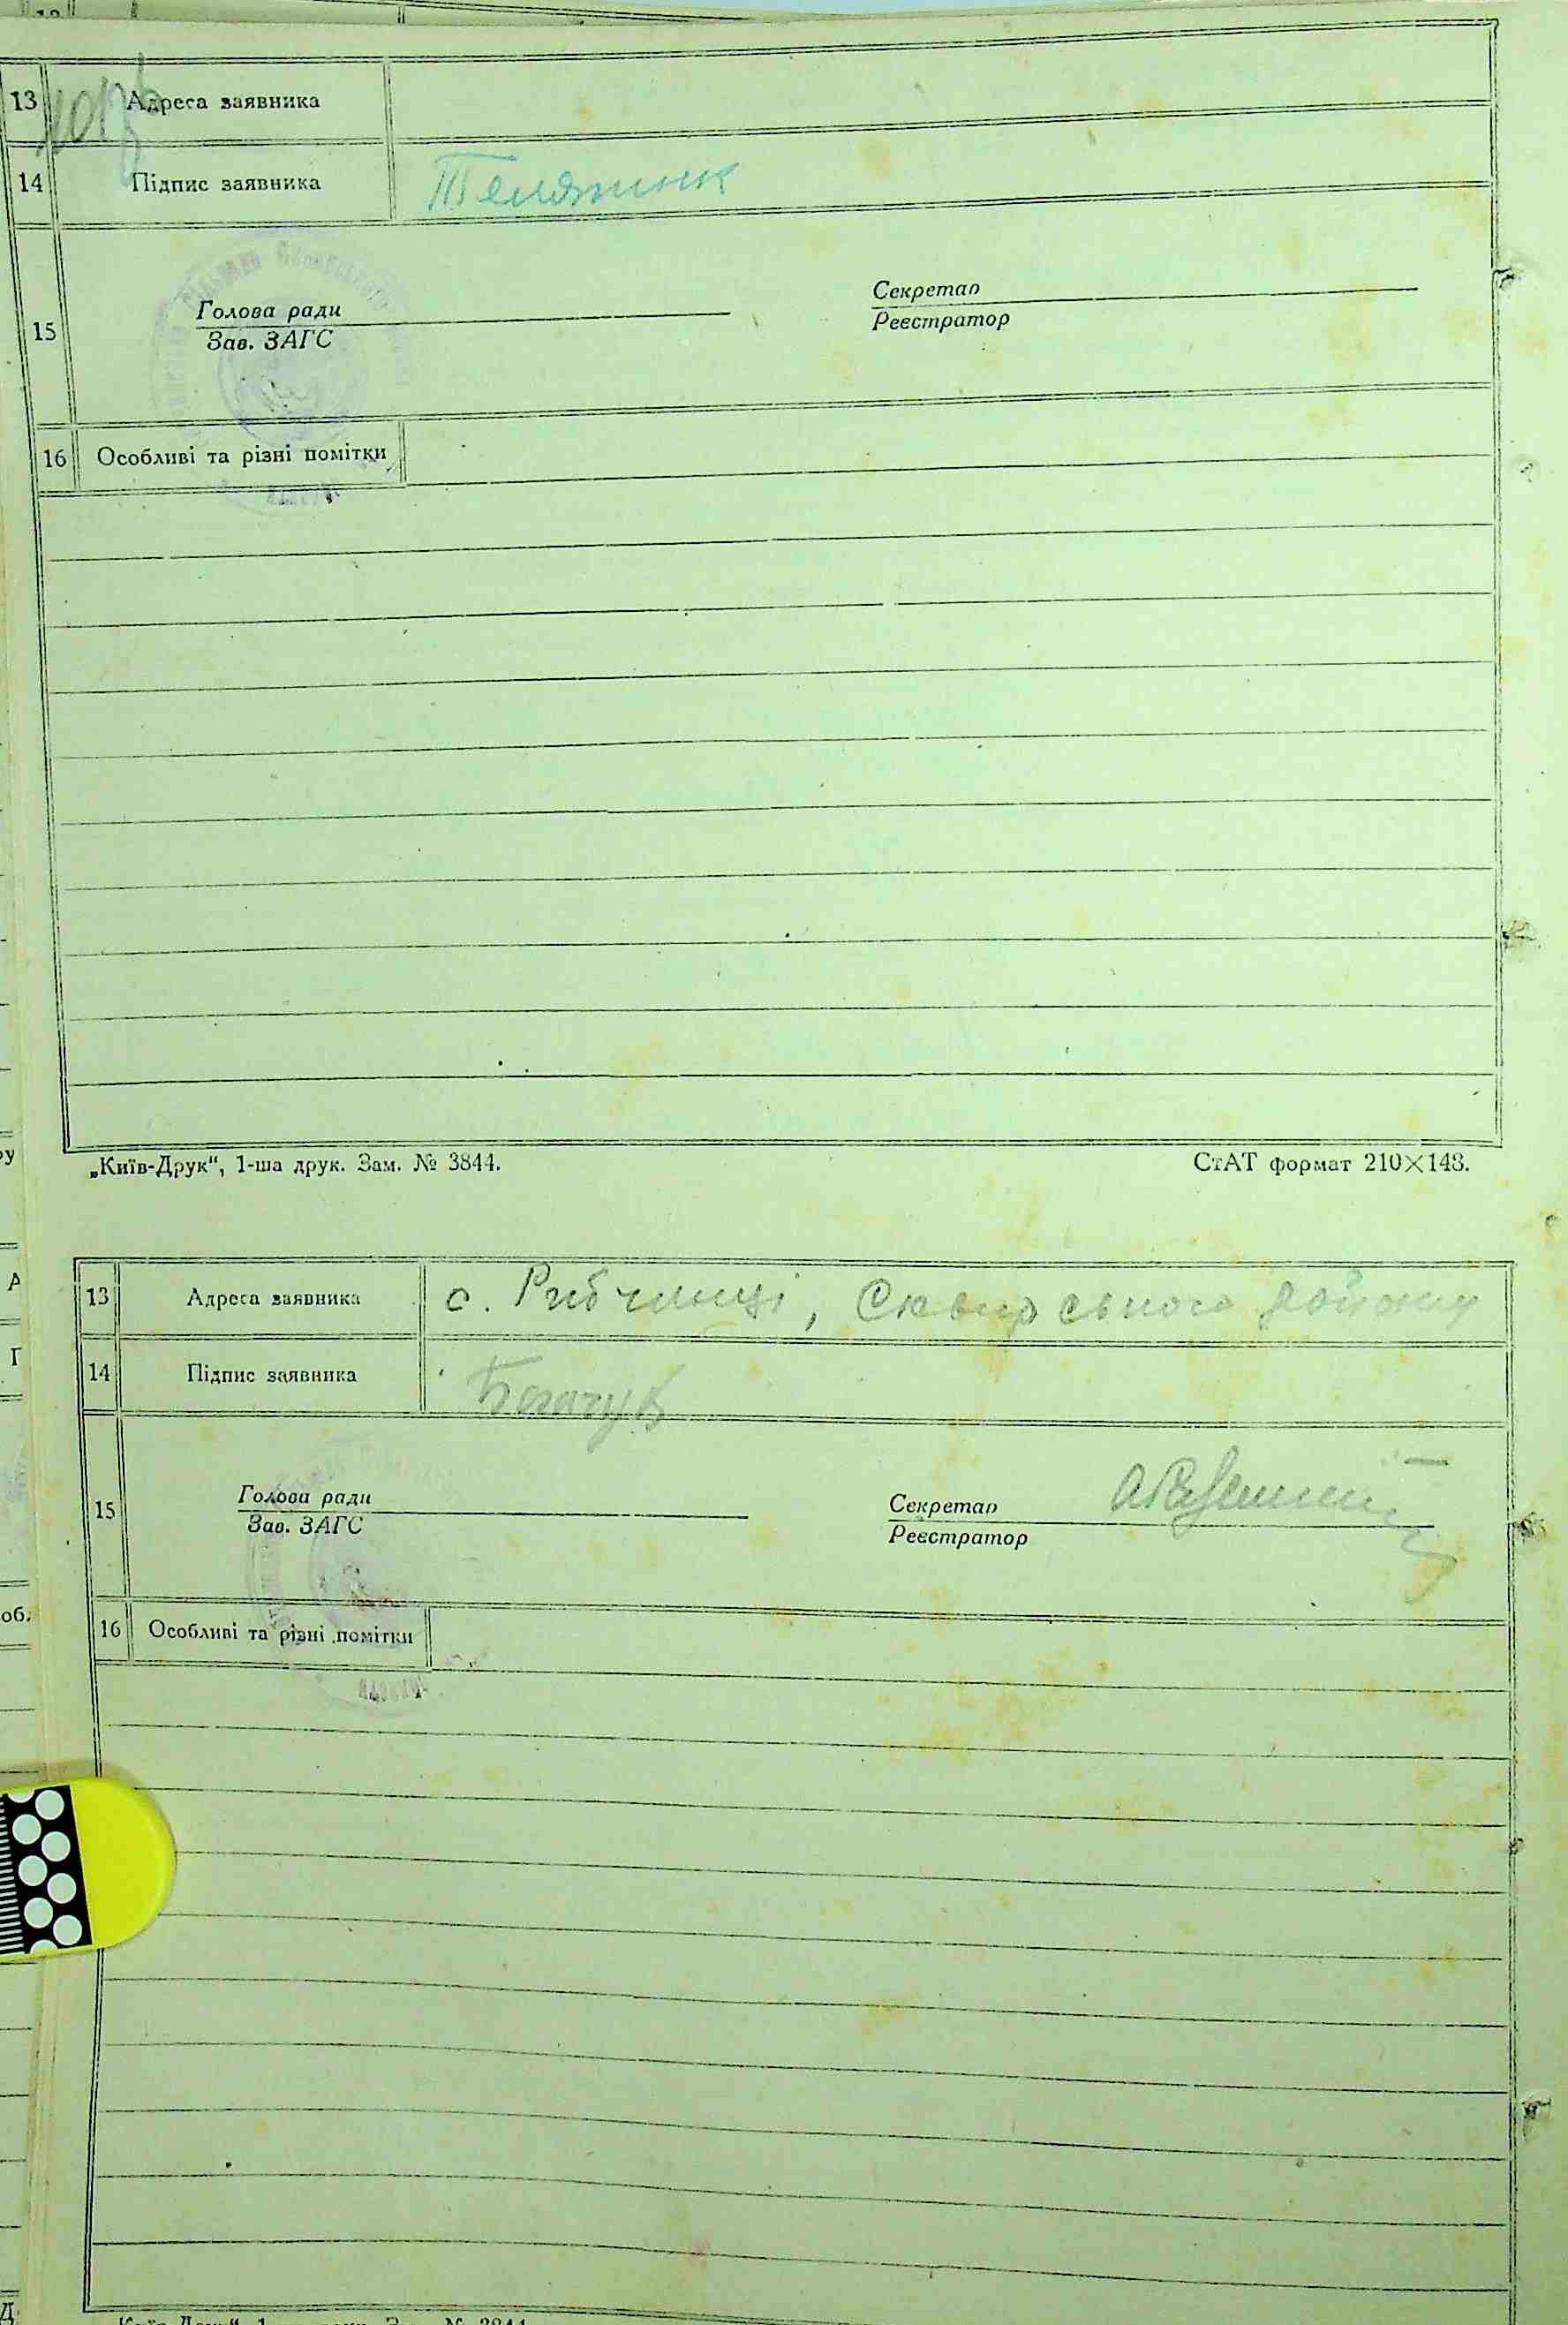 13 Адреса заявника
14 Підпис заявника Теляжник
15 Голова ради Секретар
Зав. ЗАГС Реєстратор
16 Особливі та різні помітки
„Київ-Друк“, 1-ша друк. Зам. № 3844. СтАТ формат 210×148.
13 Адреса заявника с. Рибчинці, Сквирського району
14 Підпис заявника
15 Голова ради Секретар
Зав. ЗАГС Реєстратор
16 Особливі та різні помітки
„Київ-Друк“, 1-ша друк. Зам. № 3844.